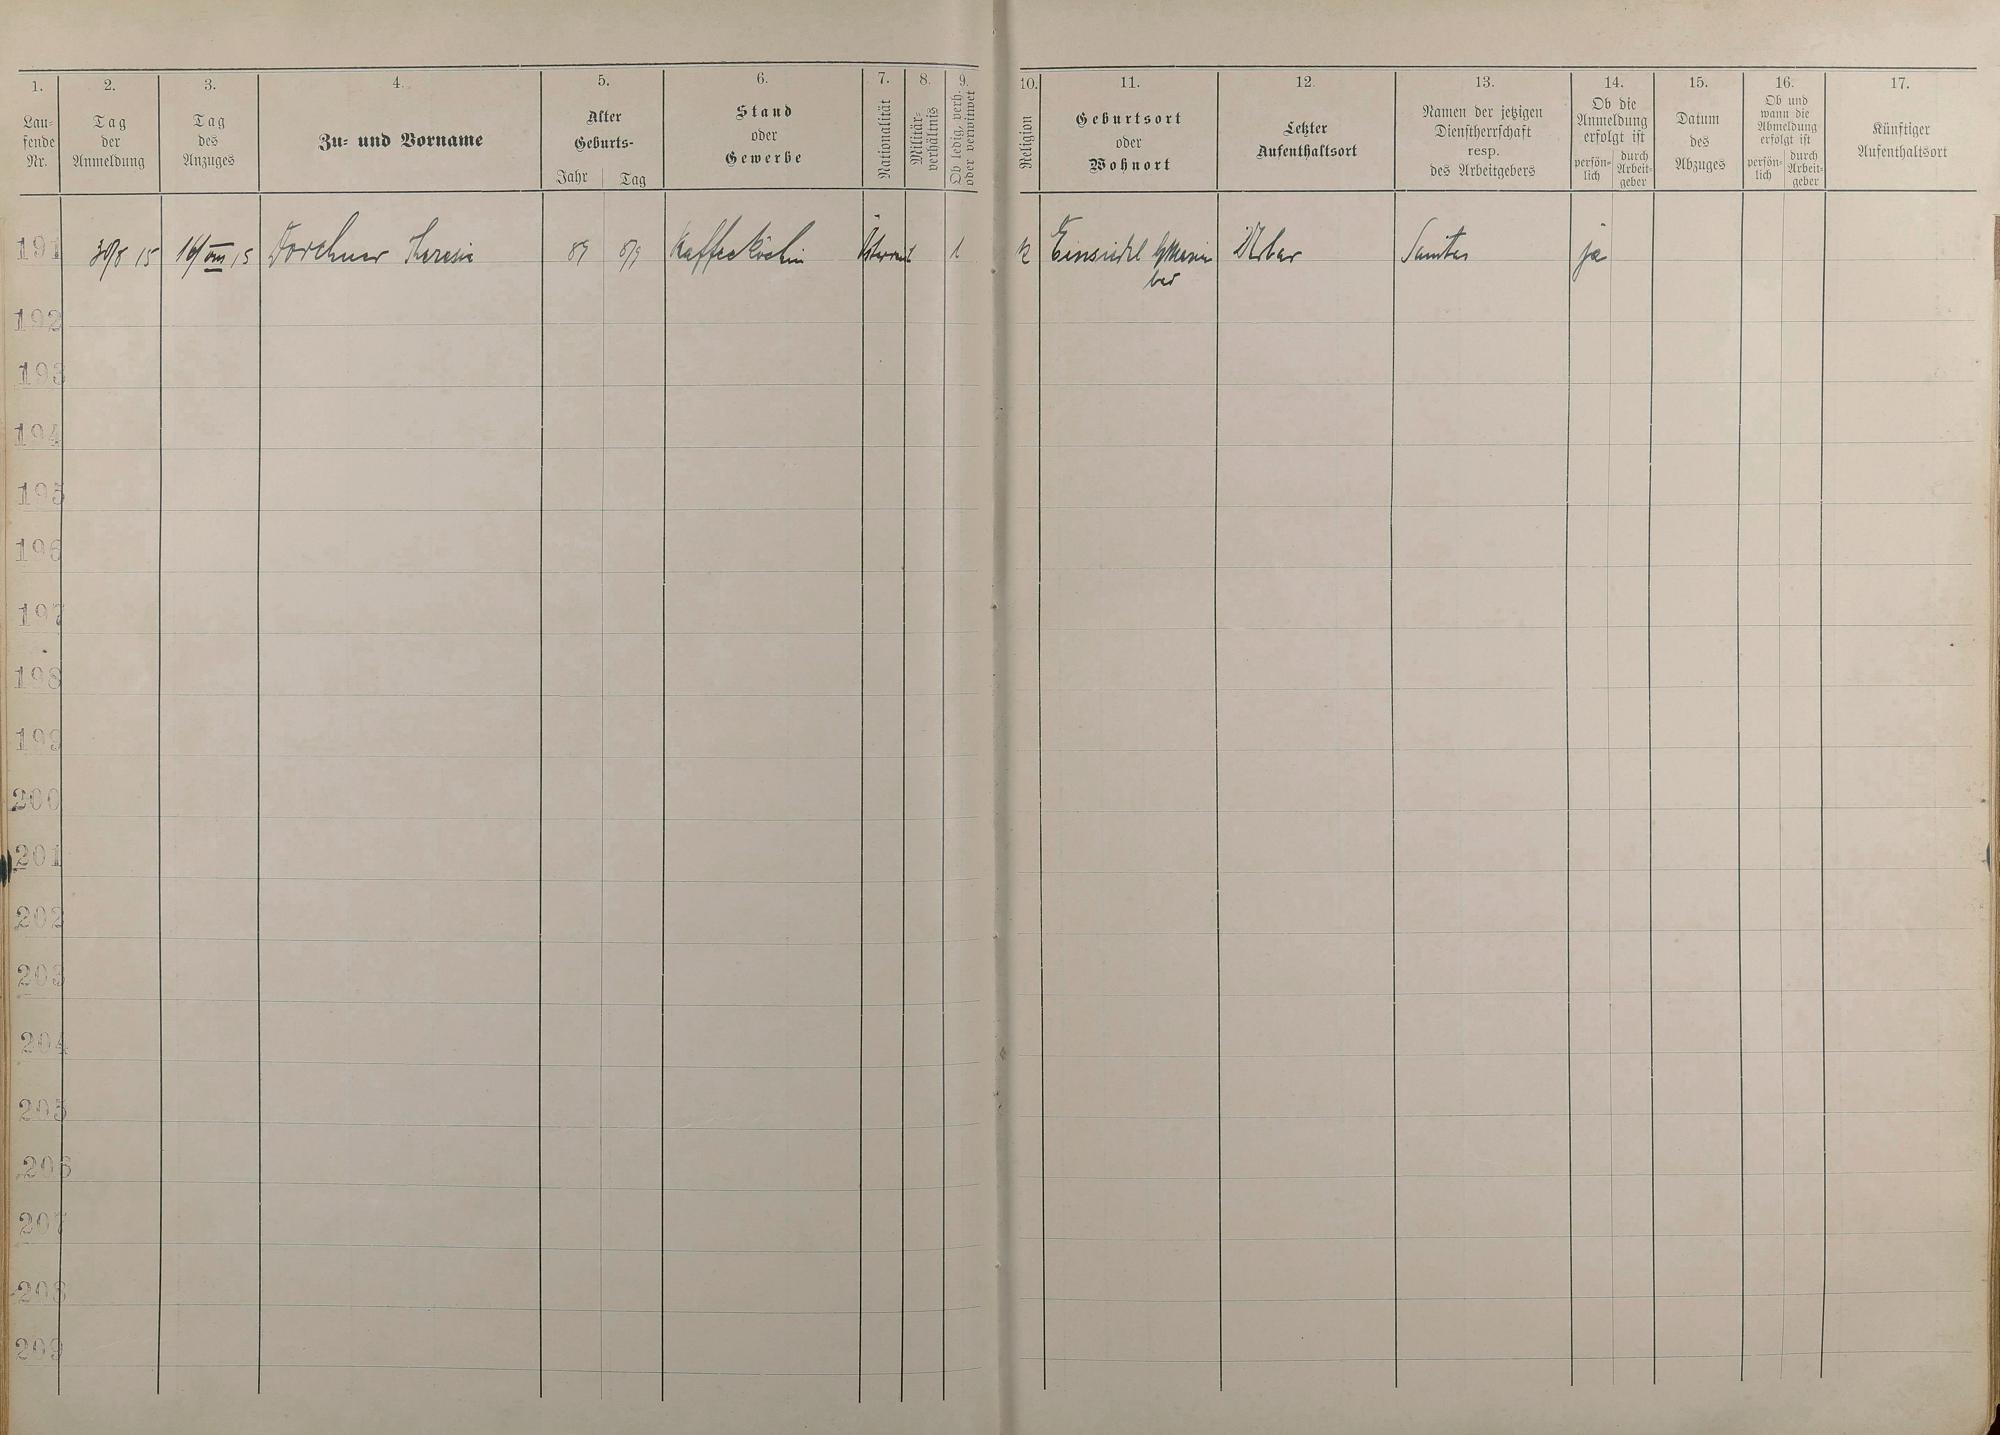 1. 2. 3. 4. 5. 6. 7. 8. 9. 10. 11. 12. 13. 14. 15. 16. 17.
Lau-
fende
Nr.
Tag
der
Anmeldung
Tag
des
Anzuges
Zu- und Vorname
Alter
Geburts-
Jahr Tag
Stand
oder
Gewerbe
Nationalität
Militär-
verhältnis
Ob ledig, verh.
oder verwitwet
Religion
Geburtsort
oder
Wohnort
Letzter
Aufenthaltsort
Namen der jetzigen
Dienstherrschaft
resp.
des Arbeitgebers
Ob die
Anmeldung
erfolgt ist
persön-
lich
durch
Arbeit-
geber
Datum
des
Abzuges
Ob und
wann die
Abmeldung
erfolgt ist
persön-
lich
durch
Arbeit-
geber
Künftiger
Aufenthaltsort
191 30/8 15 16/VIII 15 Theresia 89 8/9 Kaffeeköchin l k Einsiedl b/Marien
bad
Sanitas ja
192
193
194
195
196
197
198
199
200
201
202
203
204
205
206
207
208
209